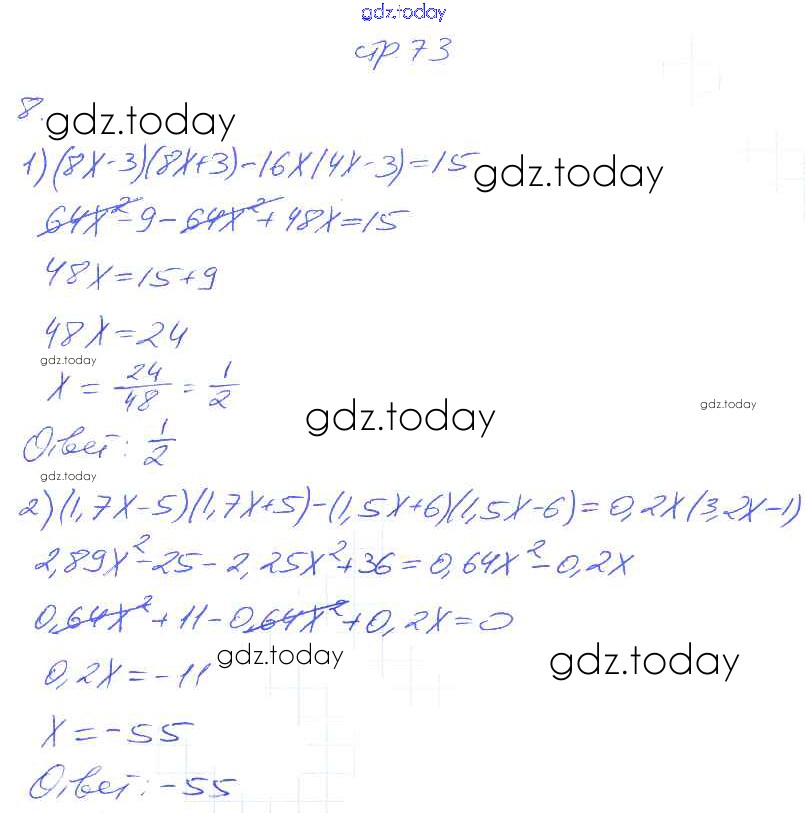 gdz.today
стр 73
8.
gdz.today
1) (8x-3)(8x+3)-16x(4x-3)=15
gdz.today
64x²-9-64x²+48x=15
48x=15+9
48x=24
gdz.today
x = 24/48 = 1/2
gdz.today
gdz.today
Ответ: 1/2
gdz.today
2) (1,7x-5)(1,7x+5)-(1,5x+6)(1,5x-6)=0,2x(3,2x-1)
2,89x²-25-2,25x²+36=0,64x²-0,2x
0,64x²+11-0,64x²+0,2x=0
gdz.today
gdz.today
0,2x=-11
x=-55
Ответ: -55